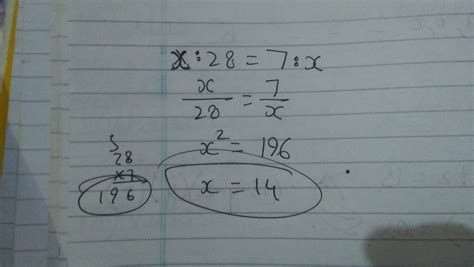 x:28 = 7:x
x/28 = 7/x
x² = 196
x = 14
5
28
x7
196